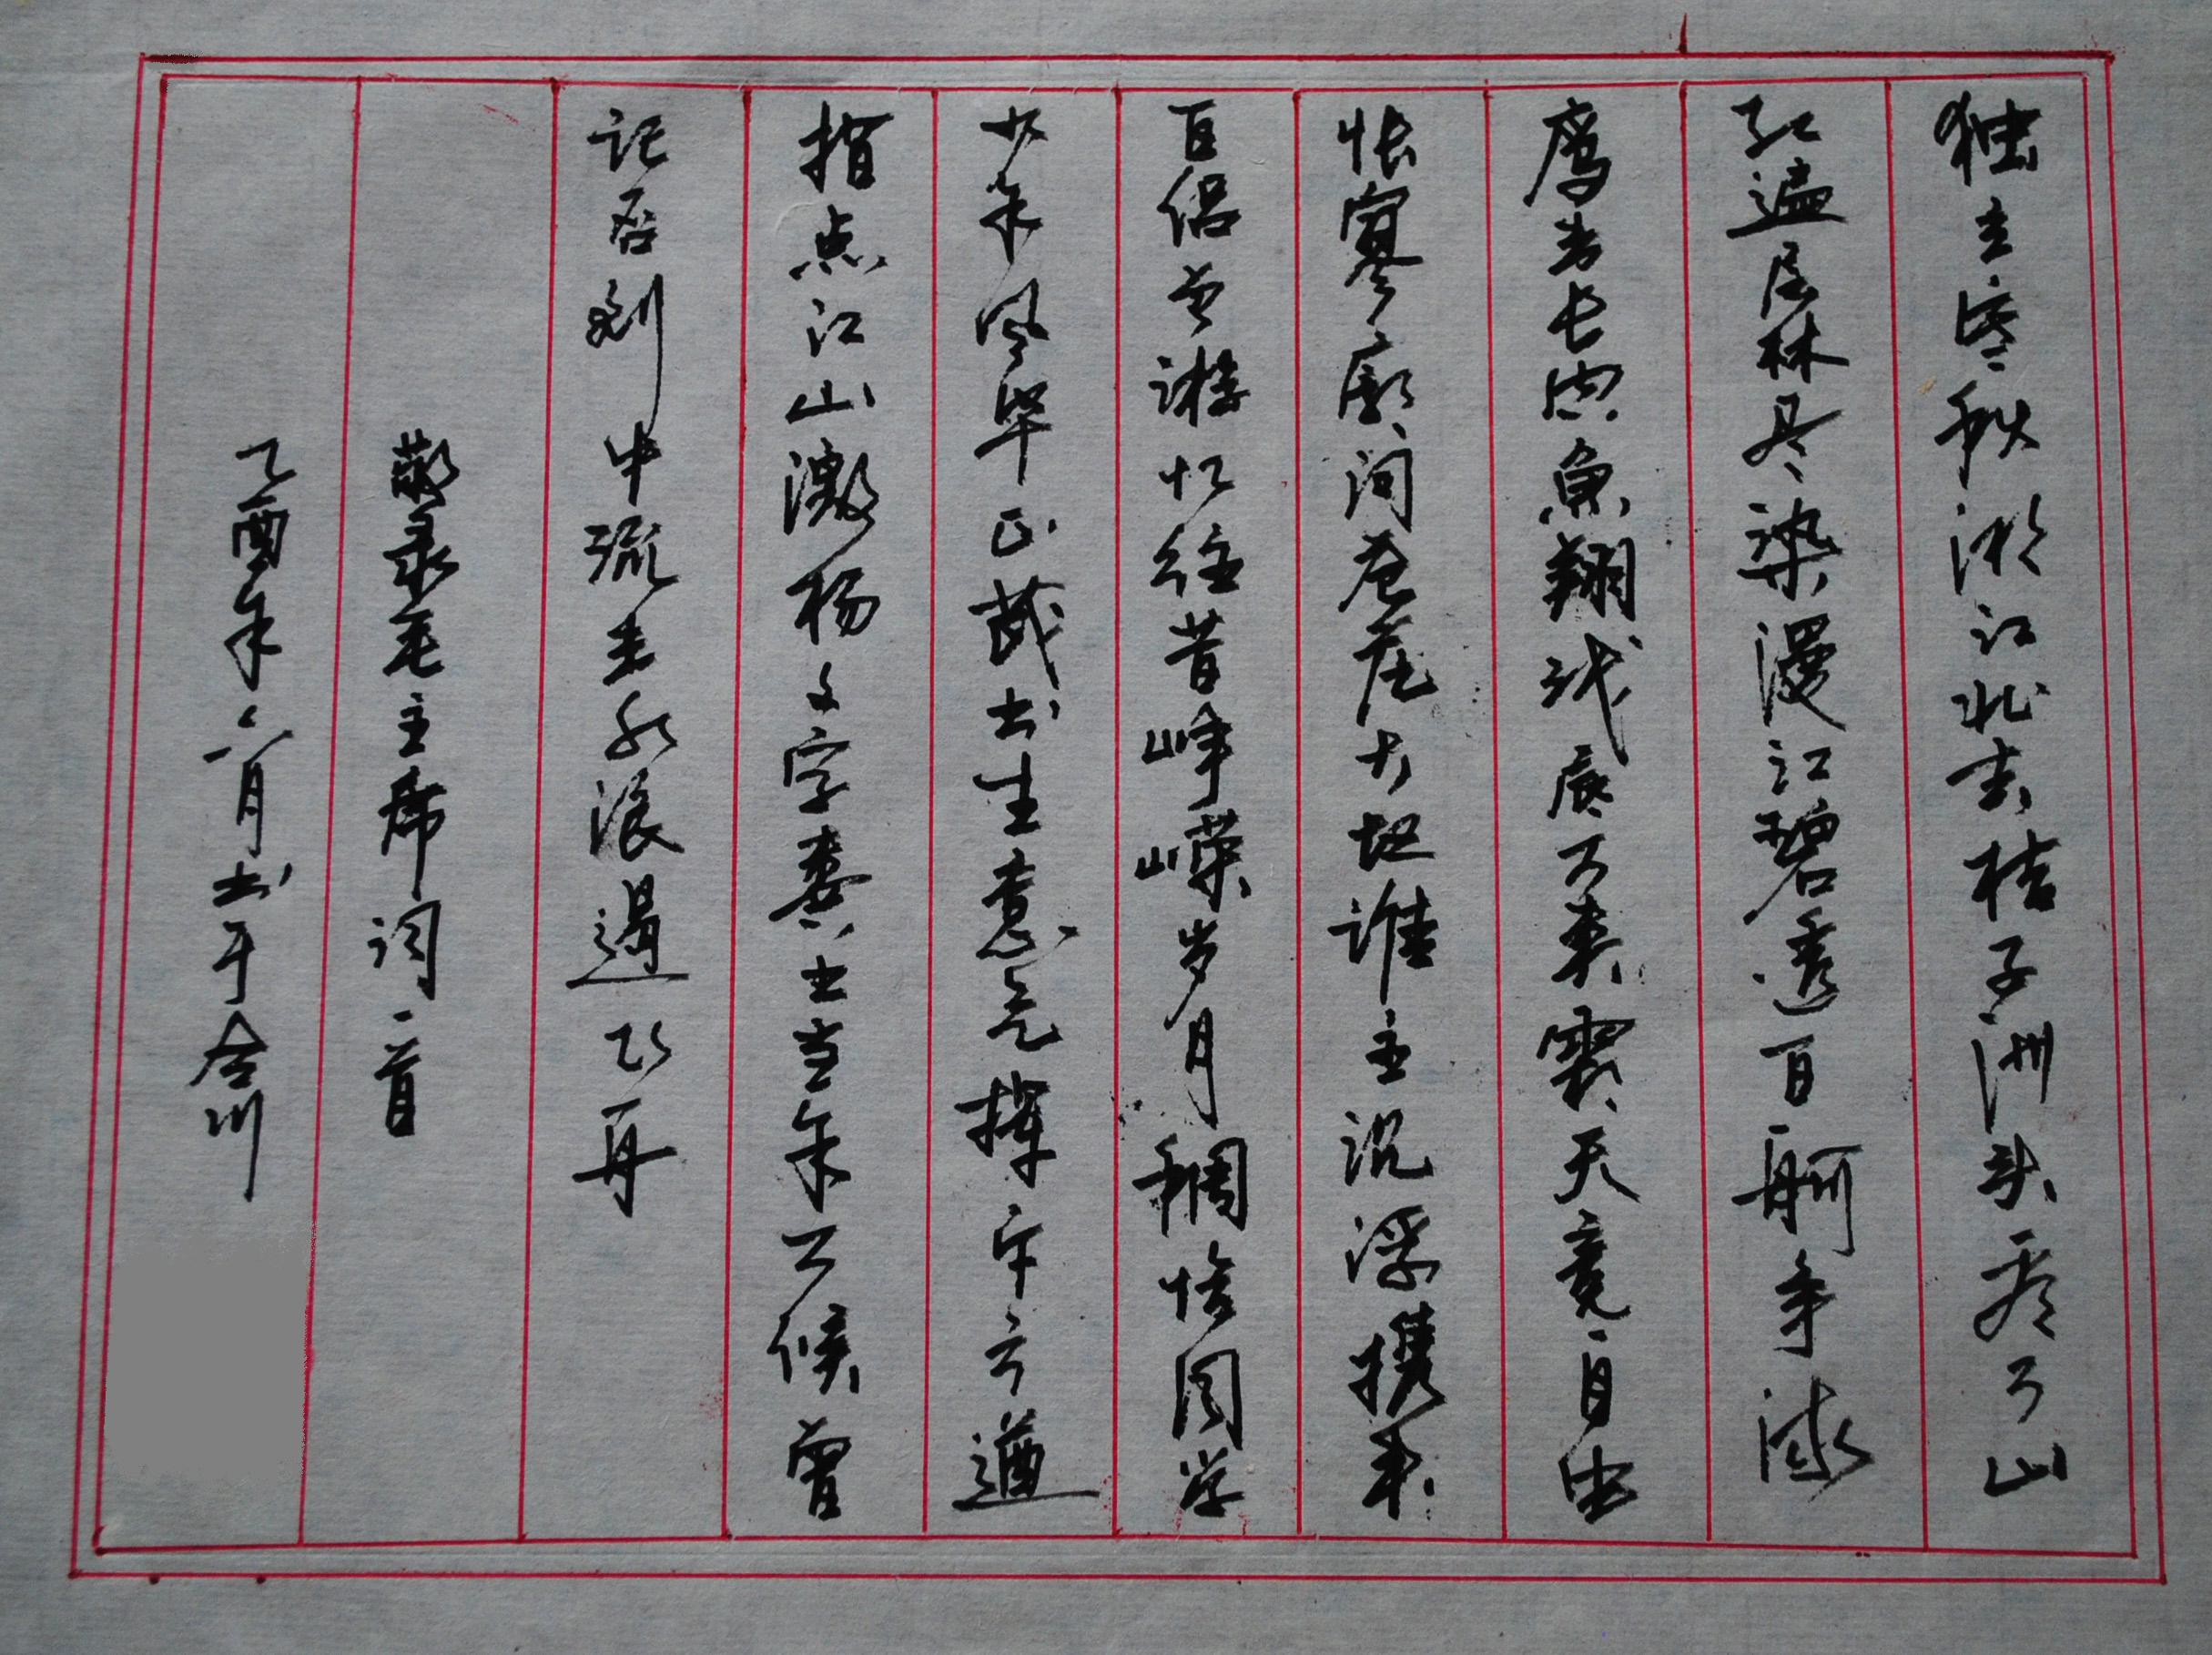 独立寒秋湘江北去桔子洲头看万山
红遍层林尽染漫江碧透百舸争流
鹰击长空鱼翔浅底万类霜天竞自由
怅寥廓问苍茫大地谁主沉浮携来
百侣曾游忆往昔峥嵘岁月稠恰同学
少年风华正茂书生意气挥斥方遒
指点江山激杨文字粪土当年万候曾
记否到中流击水浪遏飞舟
敬录毛主席词一首
乙酉年六月书于合川